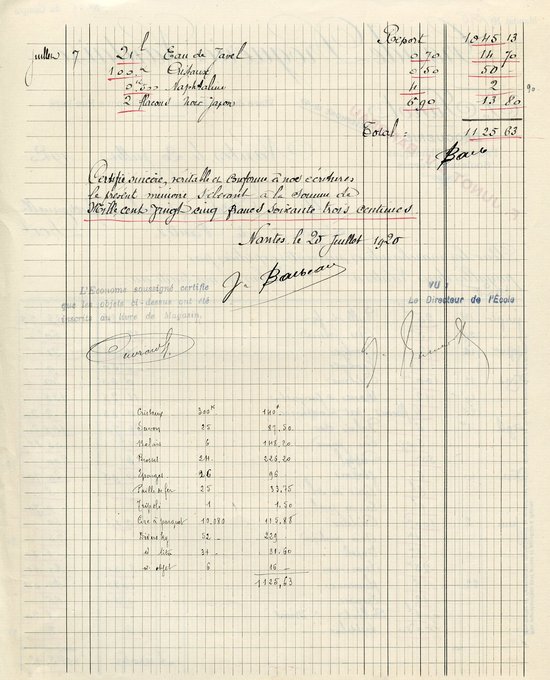 Report 1045 13
Juillet 7 21 l Eau de Javel 0 70 14 70
100 k Cristaux 0 50 50 -
0 k 500 Naphtaline 4 2 "
2 flacons noir Japon 6 90 13 80
Total : 1125 63
Certifié sincère, véritable et conforme à nos écritures
le présent mémoire s'élevant à la somme de
Mille cent vingt cinq francs soixante trois centimes
Nantes, le 20 Juillet 1920
J. Barbeau
L'Econome soussigné certifie
que les objets ci-dessus ont été
inscrits au livre de Magasin.
VU :
Le Directeur de l'École
Cristaux 300 k 140 f
Savon 25 87,50
Balais 6 148,20
Brosses 24 225,20
Éponges 26 96
Paille de fer 25 33,75
Tripoli 1 1,50
Cire à parquet 10,080 115,88
32 - 229 -
34 - 31.60
6 16 -
1125,63